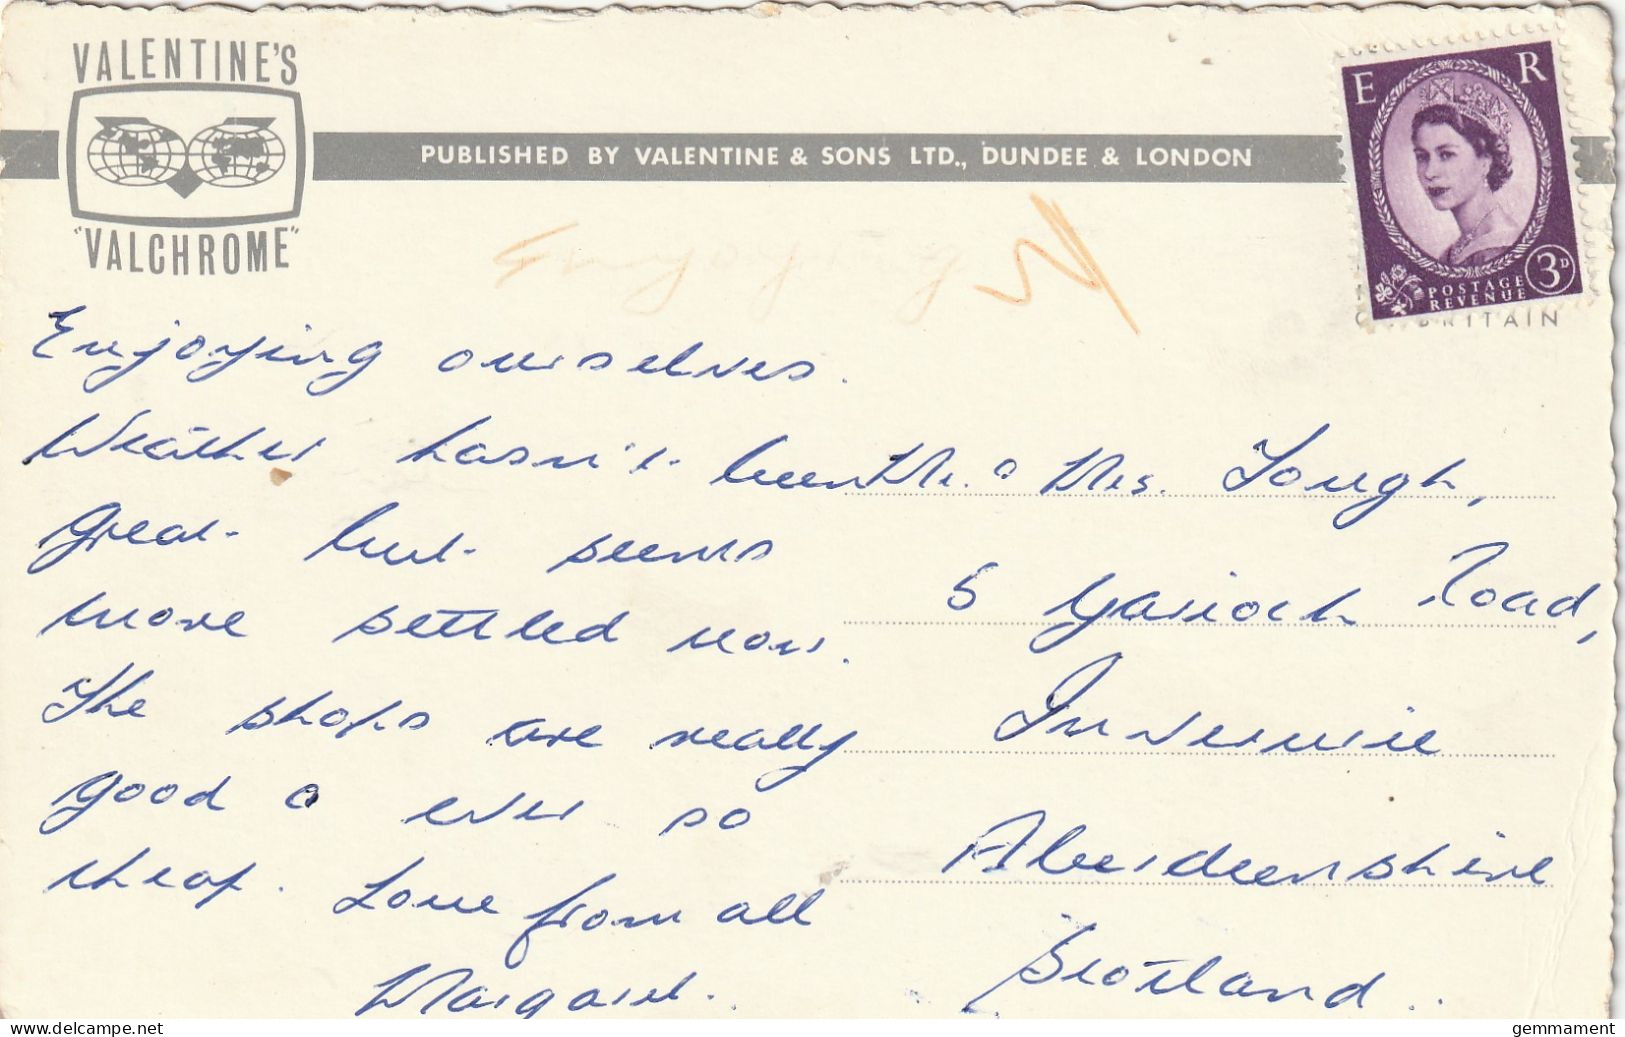 VALENTINE'S
"VALCHROME"
PUBLISHED BY VALENTINE & SONS LTD., DUNDEE & LONDON
E R
3D
POSTAGE
REVENUE
BRITAIN
Enjoying
Enjoying ourselves.
Weather hasn't been
great but seems
more settled now.
The shops are really
good & ever so
cheap. Love from all
Margaret.
Mr. & Mrs. Tough,
5 Garioch Road,
Inverurie
Aberdeenshire
Scotland.
delcampe.net
gemmament